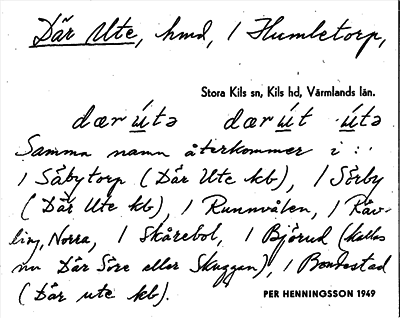 Där Ute, hmd, / Humletorp,
Stora Kils sn, Kils hd, Värmlands län.
dær útə dær út útə
Samma namn återkommer i:
/ Säbytorp (Där Ute kb), / Sörby
(Där Ute kb), / Runnvålen, / Räv-
ling, Norra, / Skårebol, / Björud (kallas
nu Där Söre eller Skuggan), / Bondestad
(Där ute kb).
PER HENNINGSSON 1949